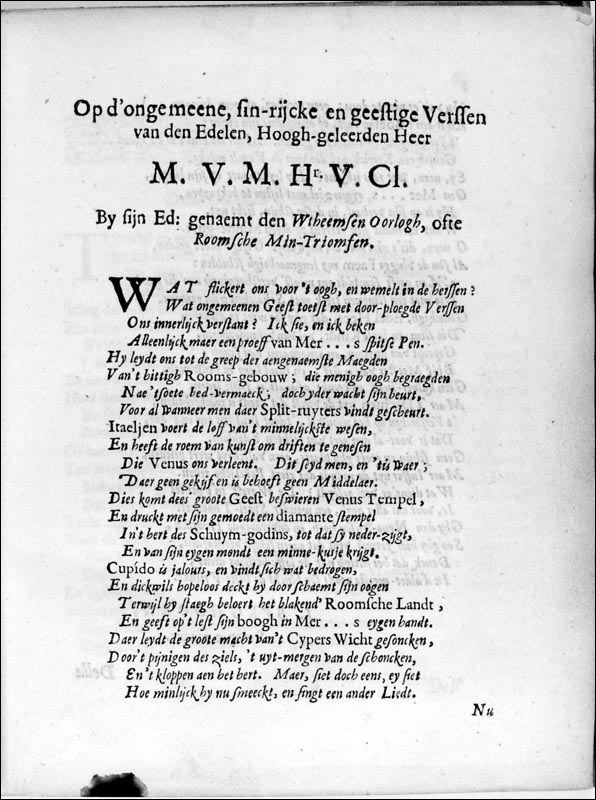 Op d'ongemeene, sin-rijcke en geestige Verssen
van den Edelen, Hoogh-geleerden Heer
M. V. M. Hr. V. Cl.
By sijn Ed: genaemt den Wtheemsen Oorlogh, ofte
Roomsche Min-Triomfen.
WAT flickert ons voor 't oogh, en wemelt in de herssen?
Wat ongemeenen Geest toetst met door-ploegde Verssen
Ons innerlijck verstant? Ick sie, en ick beken
Alleenlijck maer een proeff van Mer...s spitse Pen.
Hy leydt ons tot de greep der aengenaemste Maegden
Van 't hittigh Rooms-gebouw; die menigh oogh begraegden
Nae 'tsoete bed-vermaeck; doch yder wacht sijn beurt,
Voor al wanneer men daer Split-ruyters vindt gescheurt.
Itaeljen voert de loff van 't minnelijckste wesen,
En heeft de roem van kunst om driften te genesen
Die Venus ons verleent. Dit seyd men, en 'tis waer;
Daer geen gekijf en is behoeft geen Middelaer.
Dies komt dees' groote Geest beswieren Venus Tempel,
En druckt met sijn gemoedt een diamante stempel
In 't hert des Schuym-godins, tot dat sy neder-zijgt,
En van sijn eygen mondt een minne-kusje krijgt.
Cupido is jalours, en vindt sich wat bedrogen,
En dickwils hopeloos deckt hy door schaemt sijn oogen
Terwijl hy staegh beloert het blakend' Roomsche Landt,
En geeft op 't lest sijn boogh in Mer...s eygen handt.
Daer leydt de groote macht van 't Cypers Wicht gesoncken,
Door 't pijnigen des ziels, 't uyt-mergen van de schoncken,
En 't kloppen aen het hert. Maer, siet doch eens, ey siet
Hoe minlijck hy nu smeeckt, en singt een ander Liedt.
Nu